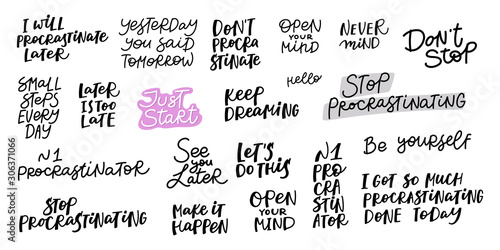 I WILL
PROCRASTINATE
LATER
YESTERDAY
YOU SAID
TOMORROW
DON'T
PROCRA
STINATE
OPEN
YOUR
MIND
NEVER
MIND
DON'T
STOP
SMALL
STEPS
EVERY
DAY
LATER
IS TOO
LATE
JUST
START
KEEP
DREAMING
hello
STOP
PROCRASTINATING
N1
PROCRASTINATOR
SEE
YOU
LATER
LET'S
DO THIS
N1
PRO
CRA
STIN
ATOR
Be yourself
STOP
PROCRASTINATING
MAKE IT
HAPPEN
OPEN
YOUR
MIND
I GOT SO MUCH
PROCRASTINATING
DONE TODAY
Adobe Stock | #306371066